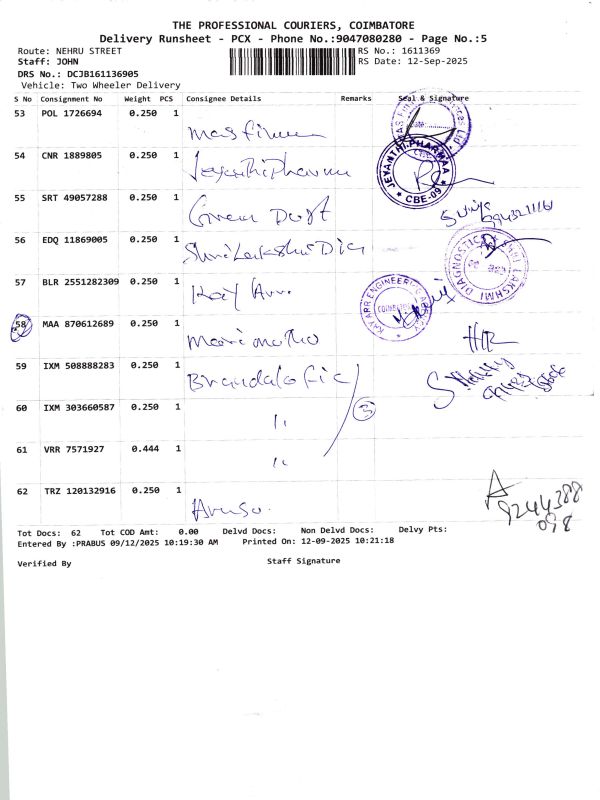 THE PROFESSIONAL COURIERS, COIMBATORE
Delivery Runsheet - PCX - Phone No.:9047080280 - Page No.:5
Route: NEHRU STREET
RS No.: 1611369
Staff: JOHN
RS Date: 12-Sep-2025
DRS No.: DCJB161136905
Vehicle: Two Wheeler Delivery
S No Consignment No Weight PCS Consignee Details Remarks Seal & Signature
53 POL 1726694 0.250 1
54 CNR 1889805 0.250 1 Jeyanthi Pharma
JEYANTHI PHARMAA
CBE-09
55 SRT 49057288 0.250 1 Green Dust
56 EDQ 11869005 0.250 1 Shri Lakshmi Dia
SHRI LAKSHMI DIAGNOSTIC
57 BLR 2551282309 0.250 1 Kay Arr.
KAY ARR ENGINEERING AGENCY
58 MAA 870612689 0.250 1 Marimuthu
59 IXM 508888283 0.250 1
60 IXM 303660587 0.250 1 "
3
61 VRR 7571927 0.444 1 "
62 TRZ 120132916 0.250 1
9244388
098
Tot Docs: 62 Tot COD Amt: 0.00 Delvd Docs: Non Delvd Docs: Delvy Pts:
Entered By :PRABUS 09/12/2025 10:19:30 AM Printed On: 12-09-2025 10:21:18
Verified By
Staff Signature